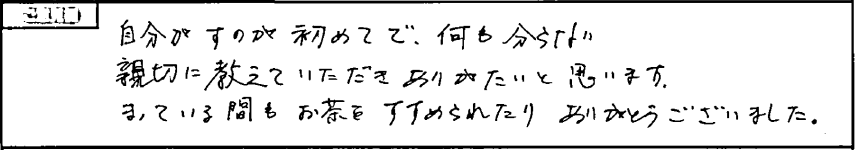 自分がするのが初めてで、何も分らない
親切に教えていただきありがたいと思います。
まっている間もお茶をすすめられたりありがとうございました。